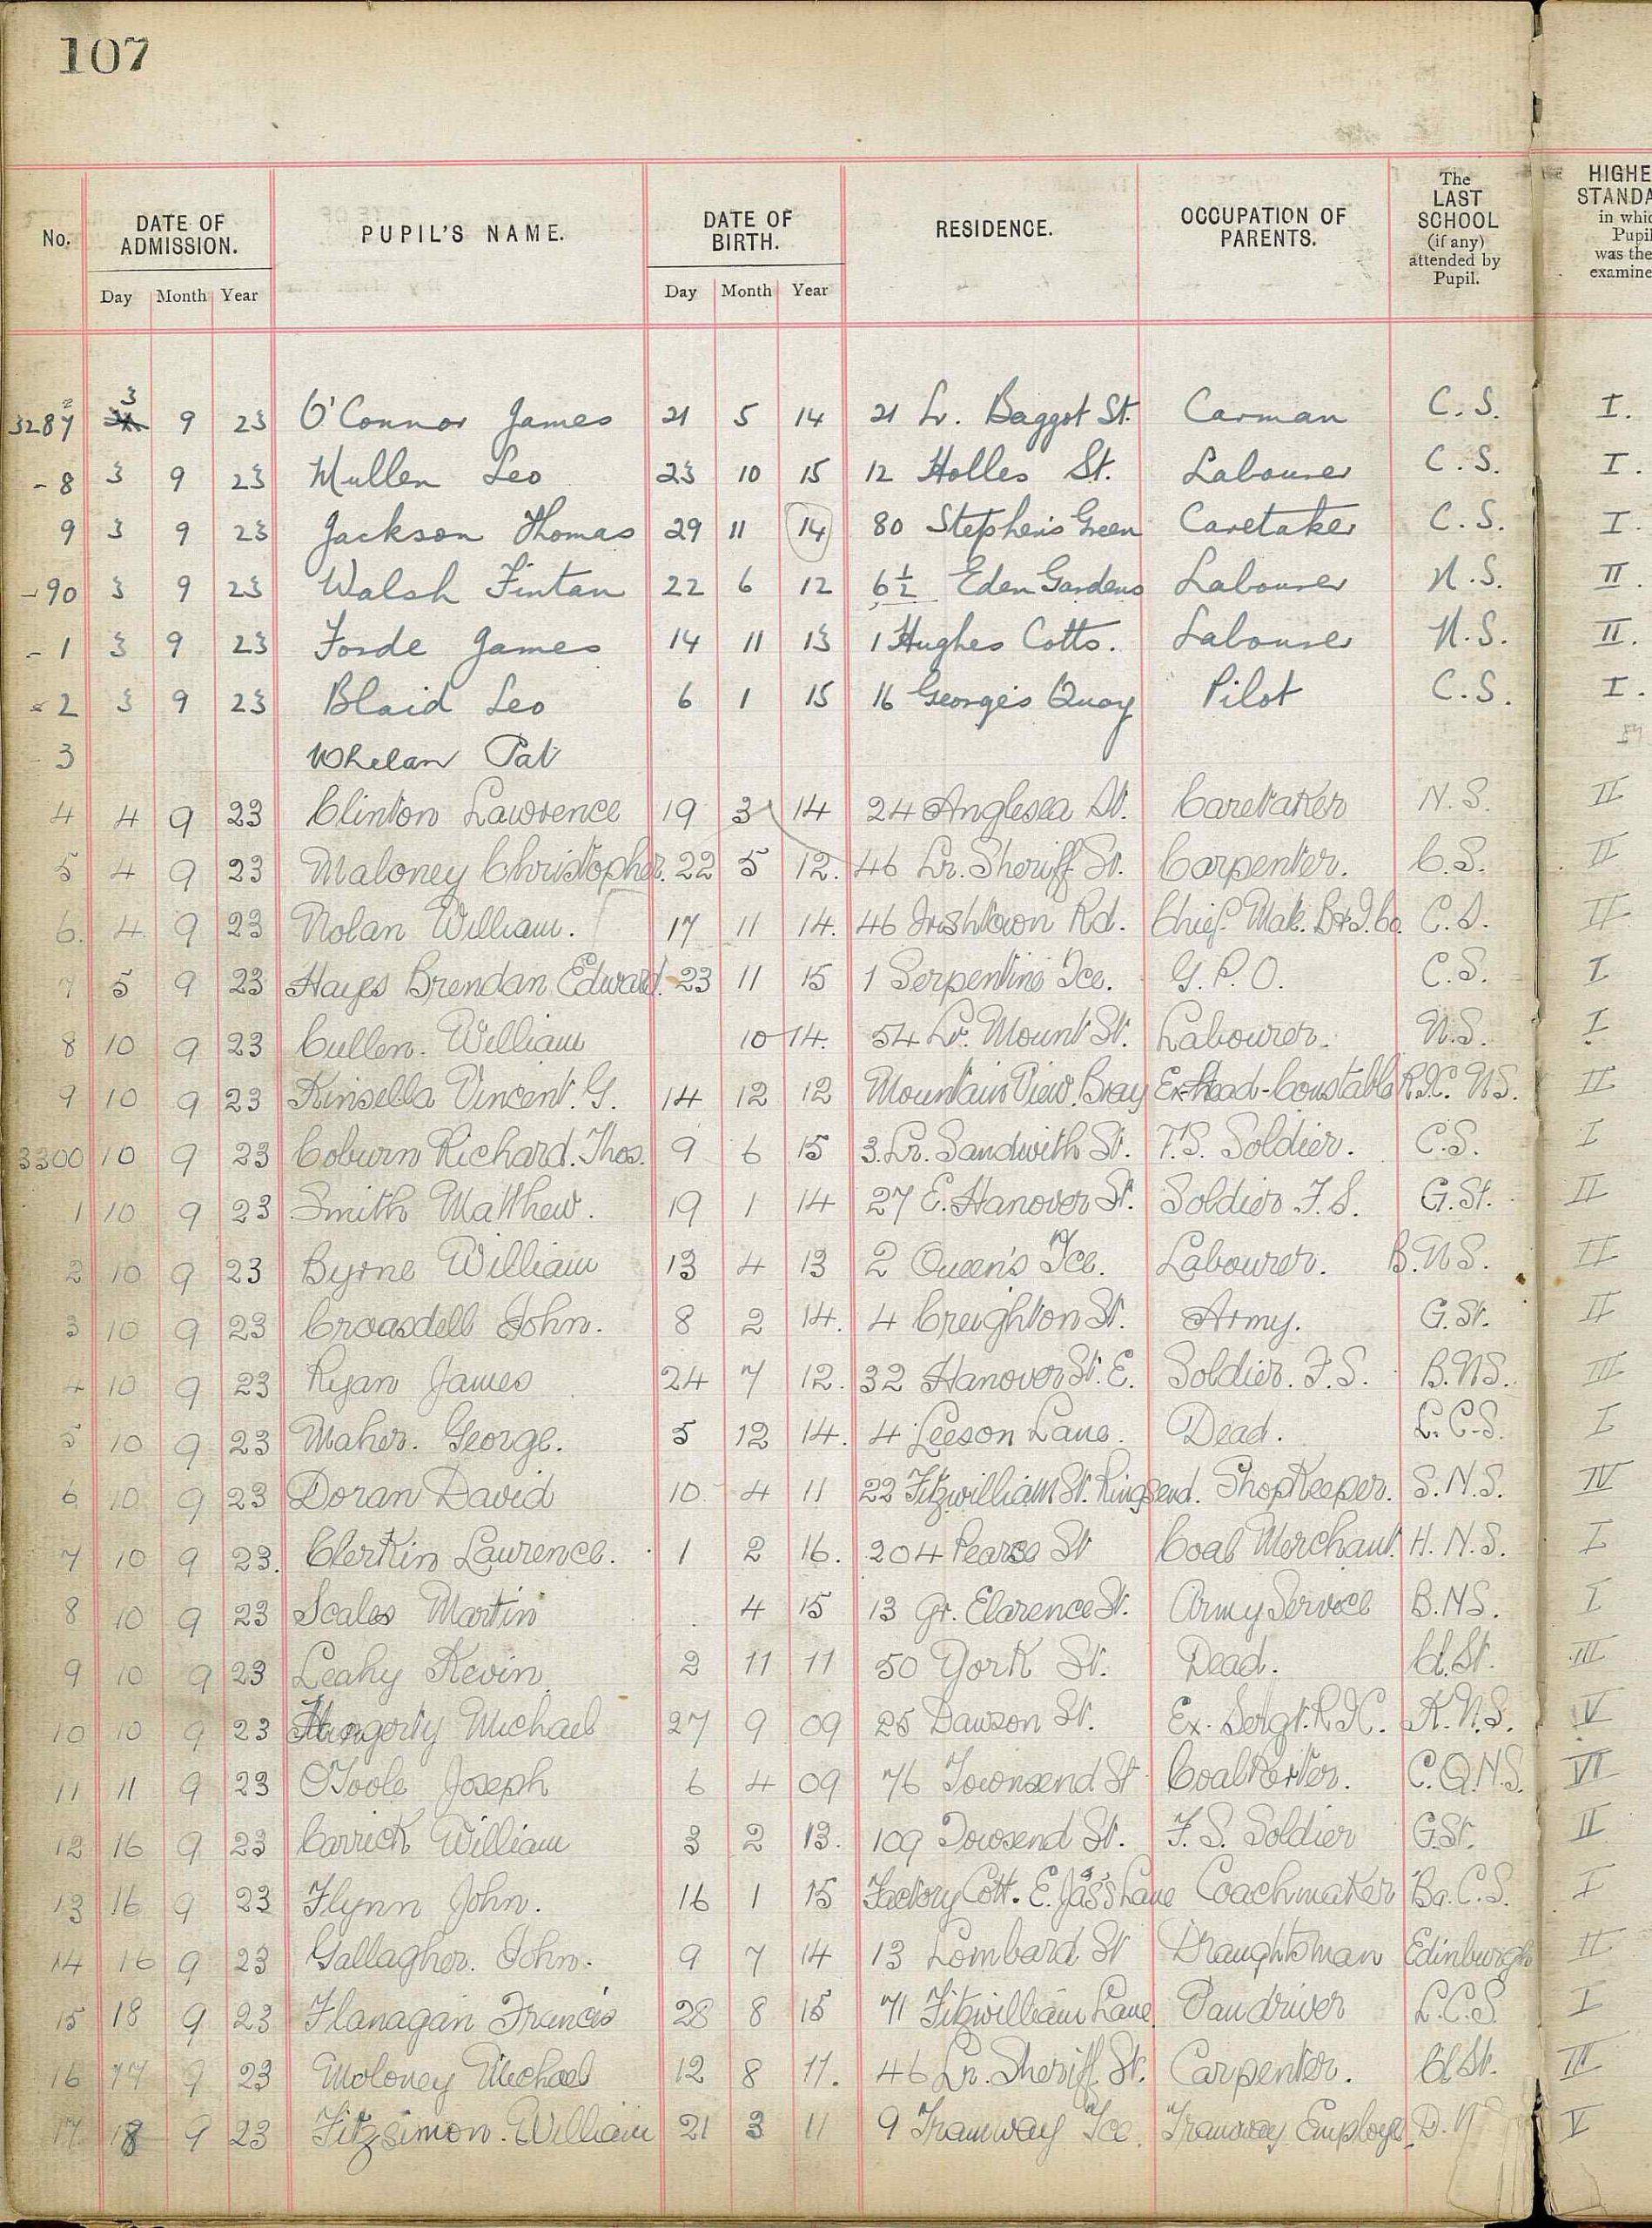 107
No. DATE OF ADMISSION. PUPIL'S NAME. DATE OF BIRTH. RESIDENCE. OCCUPATION OF PARENTS. The LAST SCHOOL (if any) attended by Pupil. HIGHE STANDA in whic Pupil was the examine
Day Month Year Day Month Year
3287 3 9 23 O'Connor James 21 5 14 21 Lr. Baggot St. Carman C.S. I.
-8 3 9 23 Mullen Leo 23 10 15 12 Holles St. Labourer C.S. I.
9 3 9 23 Jackson Thomas 29 11 14 80 Stephen's Green Caretaker C.S. I.
-90 3 9 23 Walsh Fintan 22 6 12 6½ Eden Gardens Labourer N.S. II.
-1 3 9 23 Forde James 14 11 13 1 Hughes Cotts. Labourer N.S. II.
-2 3 9 23 Blaid Leo 6 1 15 16 George's Quay Pilot C.S. I.
3 Whelan Pat
4 4 9 23 Clinton Lawrence 19 3 14 24 Anglesea St. Caretaker N.S. II
5 4 9 23 Maloney Christopher. 22 5 12. 46 Lr. Sheriff St. Carpenter. C.S. II
6. 4 9 23 Nolan William. 17 11 14. 46 Irishtown Rd. Chief C.S. II
7 5 9 23 Hayes Brendan Edward. 23 11 15 1 Serpentine Tce. G.P.O. C.S. I
8 10 9 23 Cullen. William 10 14. 54 Lr. Mount St. Labourer. N.S. I
9 10 9 23 Kinsella Vincent. G. 14 12 12 Mountain View. Bray Ex-Head-Constable R.I.C. N.S. II
3300 10 9 23 Coburn Richard. Thos. 9 6 15 3. Lr. Sandwith St. F.S. Soldier. C.S. I
1 10 9 23 Smith Matthew. 19 1 14 27 E. Hanover St. Soldier F.S. G.St. II
2 10 9 23 Byrne William 13 4 13 2 Queen's Tce. Labourer. B.N.S. II
3 10 9 23 Croasdell John. 8 2 14. 4 Creighton St. Army. G.St. II
4 10 9 23 Ryan James 24 7 12. 32 Hanover St. E. Soldier. F.S. B.N.S. III
5 10 9 23 Maher. George. 5 12 14. 4 Leeson Lane. Dead. L.C.S. I
6 10 9 23 Doran David 10 4 11 22 Fitzwilliam St. Ringsend. Shopkeeper. S.N.S. IV
7 10 9 23. Clerkin Laurence. 1 2 16. 204 Pearse St Coal Merchant. H.N.S. I
8 10 9 23 Scales Martin 4 15 13 Gr. Clarence St. Army Service B.N.S. I
9 10 9 23 Leahy Kevin 2 11 11 50 York St. Dead. Cl.St. III
10 10 9 23 Michael 27 9 09 25 Dawson St. Ex. Sergt. R.I.C. K.N.S. V
11 11 9 23 O'Toole Joseph 6 4 09 76 Townsend St Coal Porter. C.Q.N.S. VI
12 16 9 23 Carrick William 3 2 13. 109 Townsend St. F.S. Soldier G.St. II
13 16 9 23 Flynn John. 16 1 15 Factory Cott. E. Jas's Lane Coachmaker Ba.C.S. I
14 16 9 23 Gallagher. John. 9 7 14 13 Lombard St Draughtsman Edinburgh II
15 18 9 23 Flanagan Francis 28 8 15 71 Fitzwilliam Lane Vandriver L.C.S. I
16 17 9 23 Moloney Michael 12 8 11. 46 Lr. Sheriff St. Carpenter. Cl.St. III
17 18 9 23 Fitzsimon. William 21 3 11 9 Tramway Tce. Tramway Employé D.N V